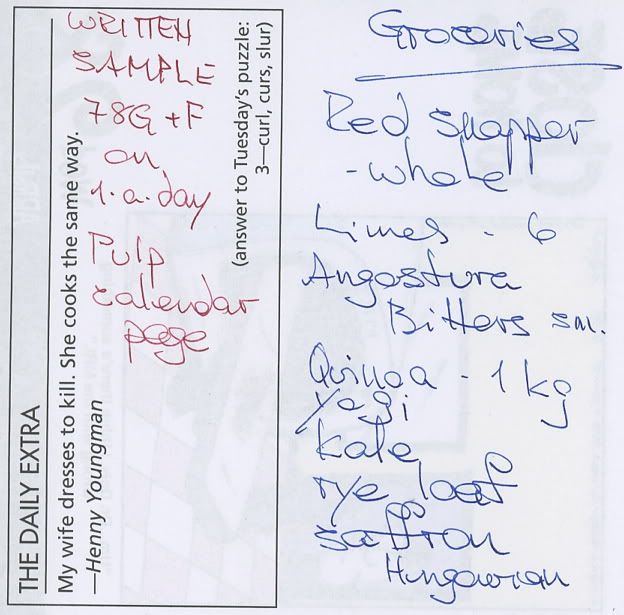 WRITTEN
SAMPLE
78G + F
on
1.a.day
Pulp
calendar
page
THE DAILY EXTRA
My wife dresses to kill. She cooks the same way.
—Henny Youngman
(answer to Tuesday's puzzle:
3—curl, curs, slur)
Groceries
Red snapper
- whole
Limes - 6
Angostura
Bitters sm.
Quinoa - 1 kg
Yogi
Kale
rye loaf
saffron
Hungarian